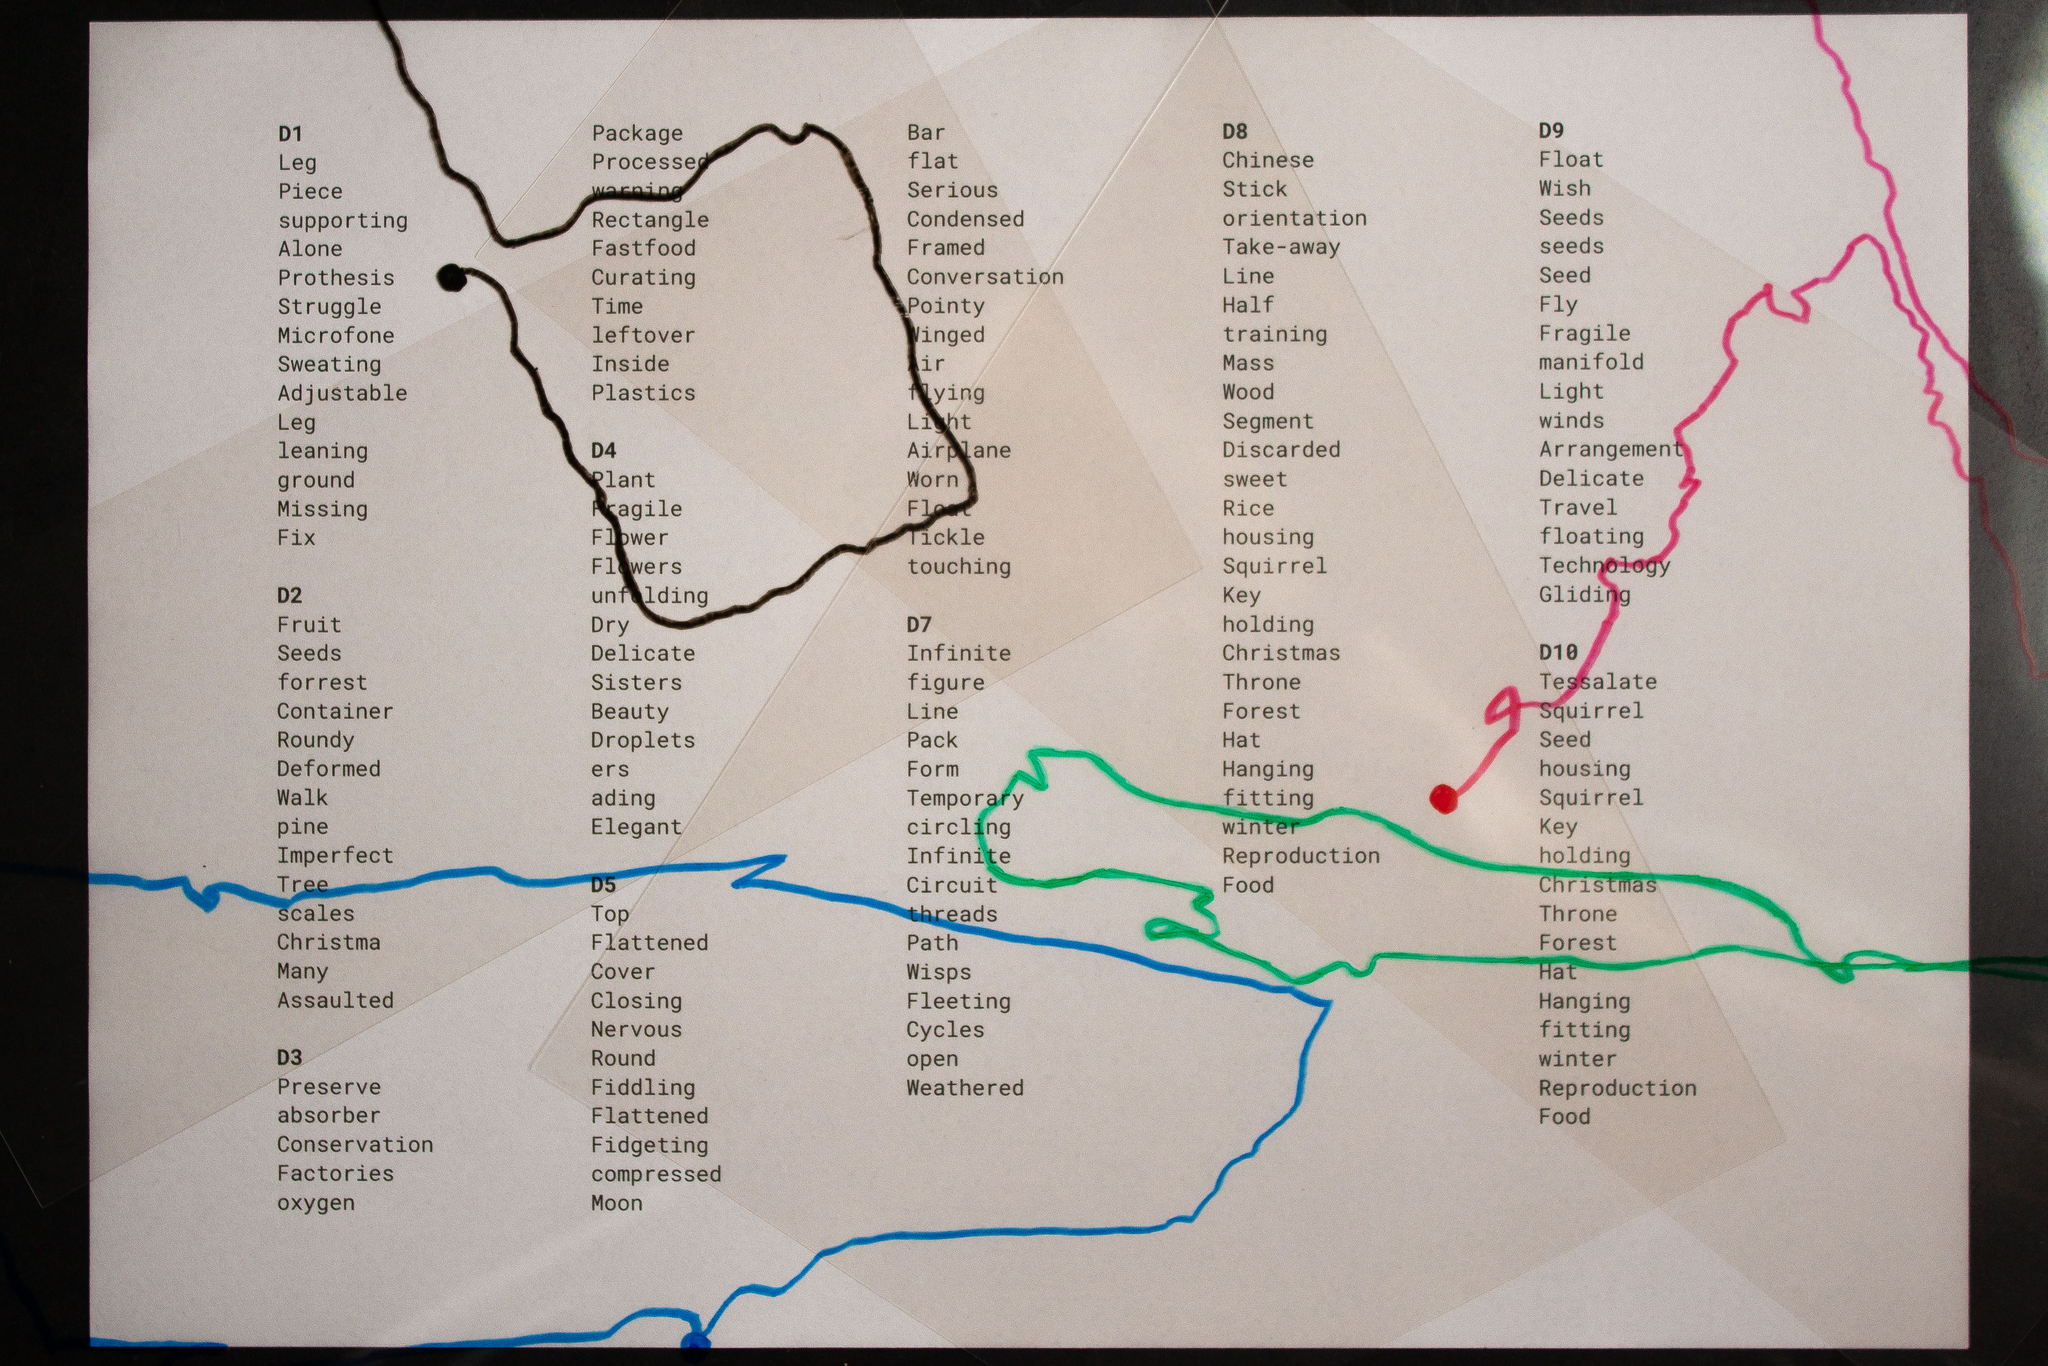 D1
Leg
Piece
supporting
Alone
Prothesis
Struggle
Microfone
Sweating
Adjustable
Leg
leaning
ground
Missing
Fix
D2
Fruit
Seeds
forrest
Container
Roundy
Deformed
Walk
pine
Imperfect
Tree
scales
Christma
Many
Assaulted
D3
Preserve
absorber
Conservation
Factories
oxygen
Package
Processed
warning
Rectangle
Fastfood
Curating
Time
leftover
Inside
Plastics
D4
Plant
Fragile
Flower
Flowers
unfolding
Dry
Delicate
Sisters
Beauty
Droplets
ers
ading
Elegant
D5
Top
Flattened
Cover
Closing
Nervous
Round
Fiddling
Flattened
Fidgeting
compressed
Moon
Bar
flat
Serious
Condensed
Framed
Conversation
Pointy
Winged
Air
flying
Light
Airplane
Worn
Float
Tickle
touching
D7
Infinite
figure
Line
Pack
Form
Temporary
circling
Infinite
Circuit
threads
Path
Wisps
Fleeting
Cycles
open
Weathered
D8
Chinese
Stick
orientation
Take-away
Line
Half
training
Mass
Wood
Segment
Discarded
sweet
Rice
housing
Squirrel
Key
holding
Christmas
Throne
Forest
Hat
Hanging
fitting
winter
Reproduction
Food
D9
Float
Wish
Seeds
seeds
Seed
Fly
Fragile
manifold
Light
winds
Arrangement
Delicate
Travel
floating
Technology
Gliding
D10
Tessalate
Squirrel
Seed
housing
Squirrel
Key
holding
Christmas
Throne
Forest
Hat
Hanging
fitting
winter
Reproduction
Food